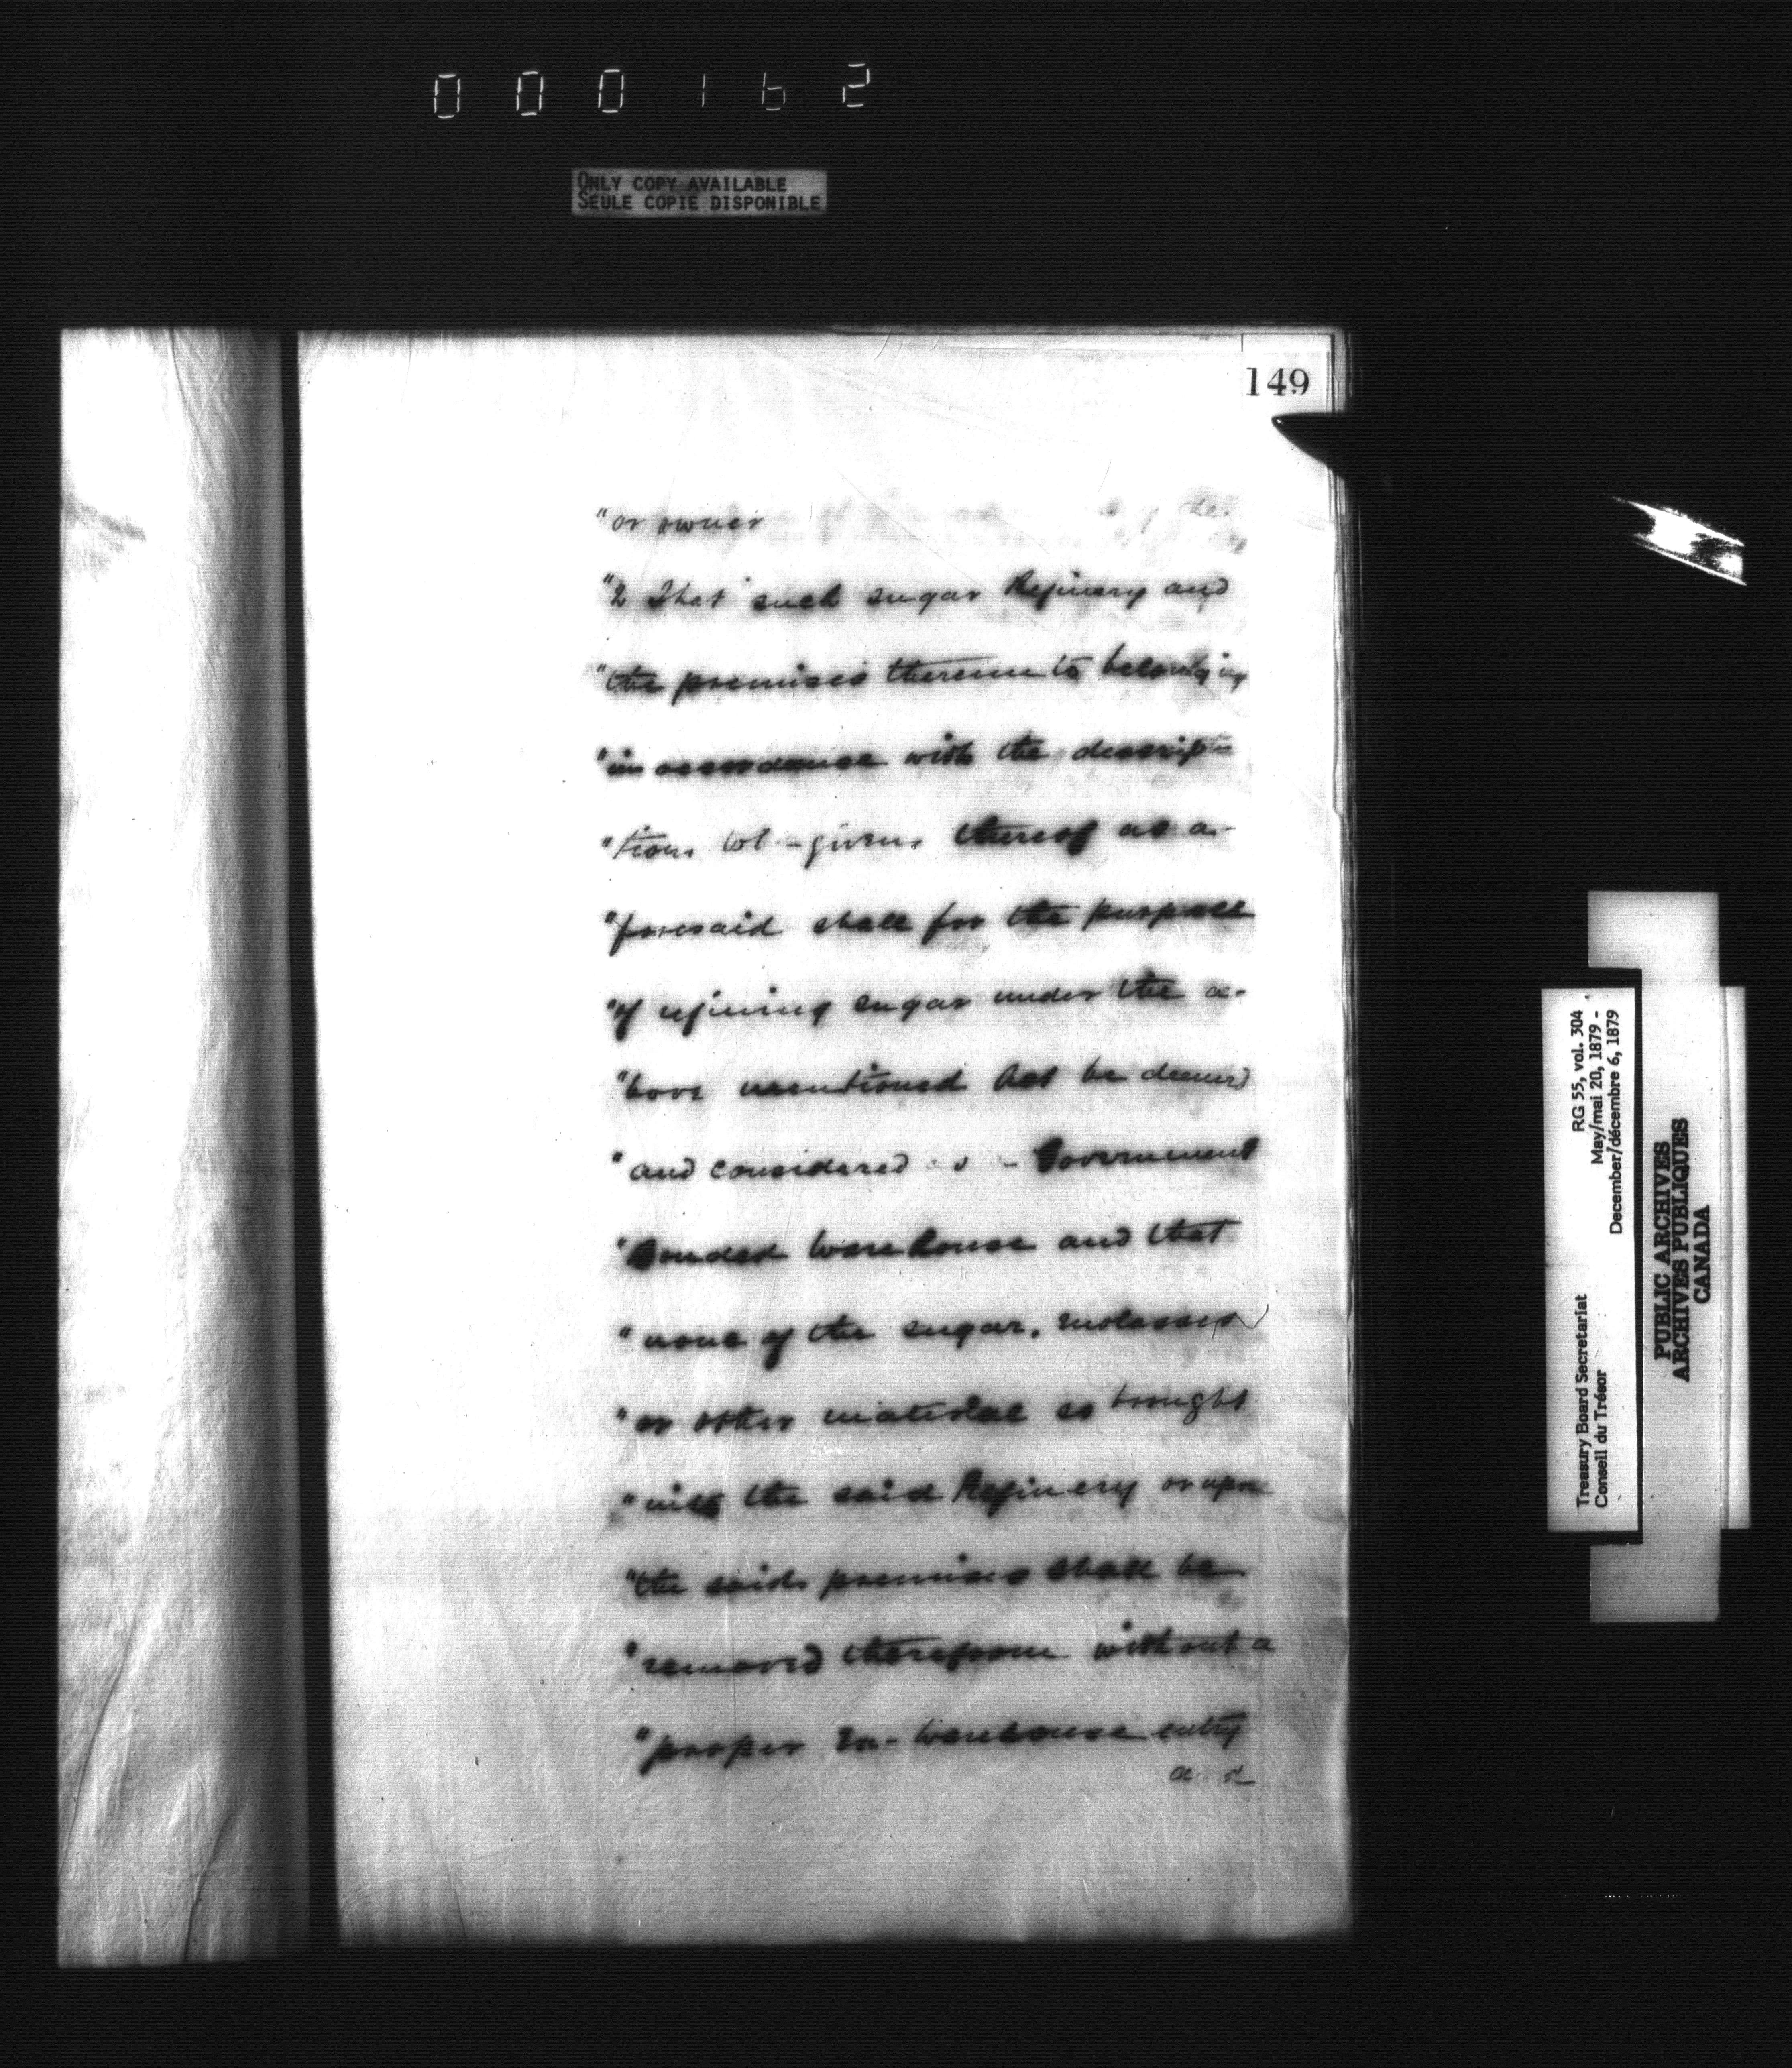 000162
ONLY COPY AVAILABLE
SEULE COPIE DISPONIBLE
149
"or owner
"2 That such sugar Refinery and
"the premises thereunto belonging
"in accordance with the descrip=
"tion given thereof as a-
"foresaid shall for the purpose
"of refining sugar under the a-
"bove mentioned Act be deemed
"and considered as a Government
"Bonded Warehouse and that
"none of the sugar, molasses
"or other material so brought
"into the said Refinery or upon
"the said premises shall be
"removed therefrom without a
"proper Ex-Warehouse entry
Treasury Board Secretariat RG 55, vol. 304
Conseil du Trésor May/mai 20, 1879 -
December/décembre 6, 1879
PUBLIC ARCHIVES
ARCHIVES PUBLIQUES
CANADA